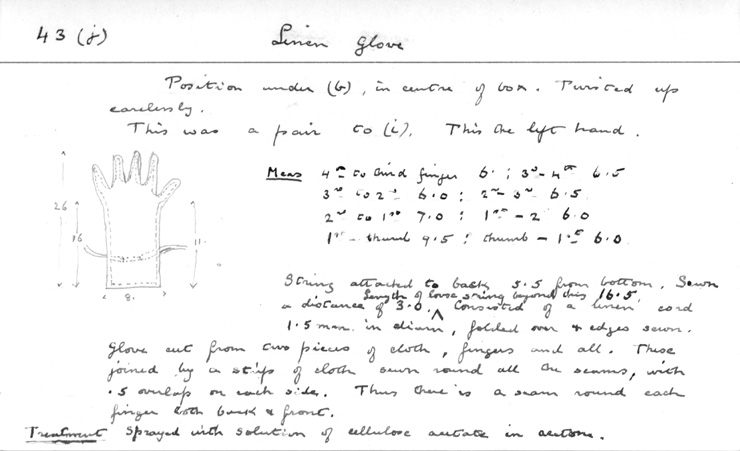 43 (j) Linen Glove
Position under (b), in centre of box. Twisted up
carelessly.
This was a pair to (i). This the left hand.
Meas 4th to third finger 6. ; 3d - 4th 6.5
3rd to 2d 6.0 ; 2nd - 3rd 6.5
2nd to 1st 7.0 ; 1st - 2 6.0
1st - thumb 9.5 ; thumb - 1st 6.0
26
16
11.
8.
String attached to back 5.5 from bottom. Sewn
Length of loose string beyond this 16.5.
a distance of 3.0. ^ Consisted of a linen cord
1.5 mm. in diam, folded over & edges sewn.
Glove cut from two pieces of cloth, fingers and all. These
joined by a strip of cloth sewn round all the seams, with
.5 overlap on each side. Thus there is a seam round each
finger both back & front.
Treatment Sprayed with solution of cellulose acetate in acetone.